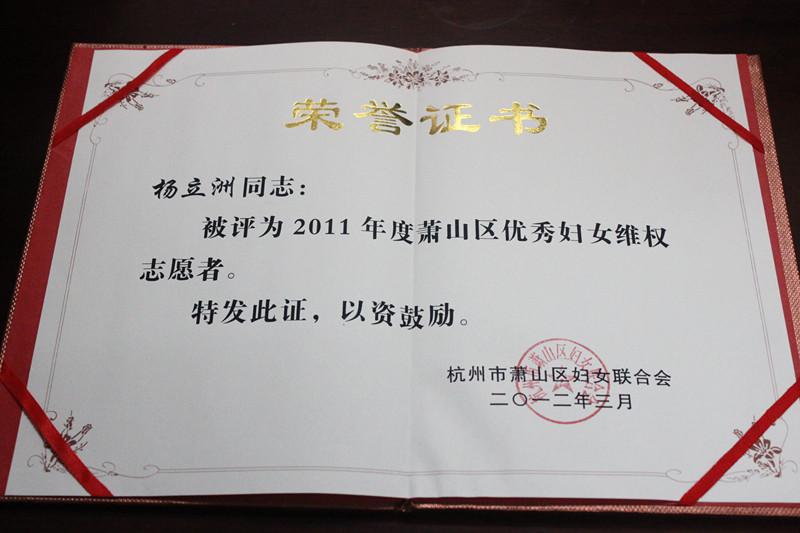 荣誉证书
杨立洲同志：
被评为2011年度萧山区优秀妇女维权
志愿者。
特发此证，以资鼓励。
杭州市萧山区妇女联合会
二〇一二年三月
杭州市萧山区妇女联合会